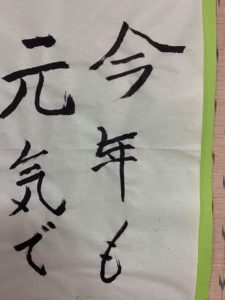 今年も
元気で